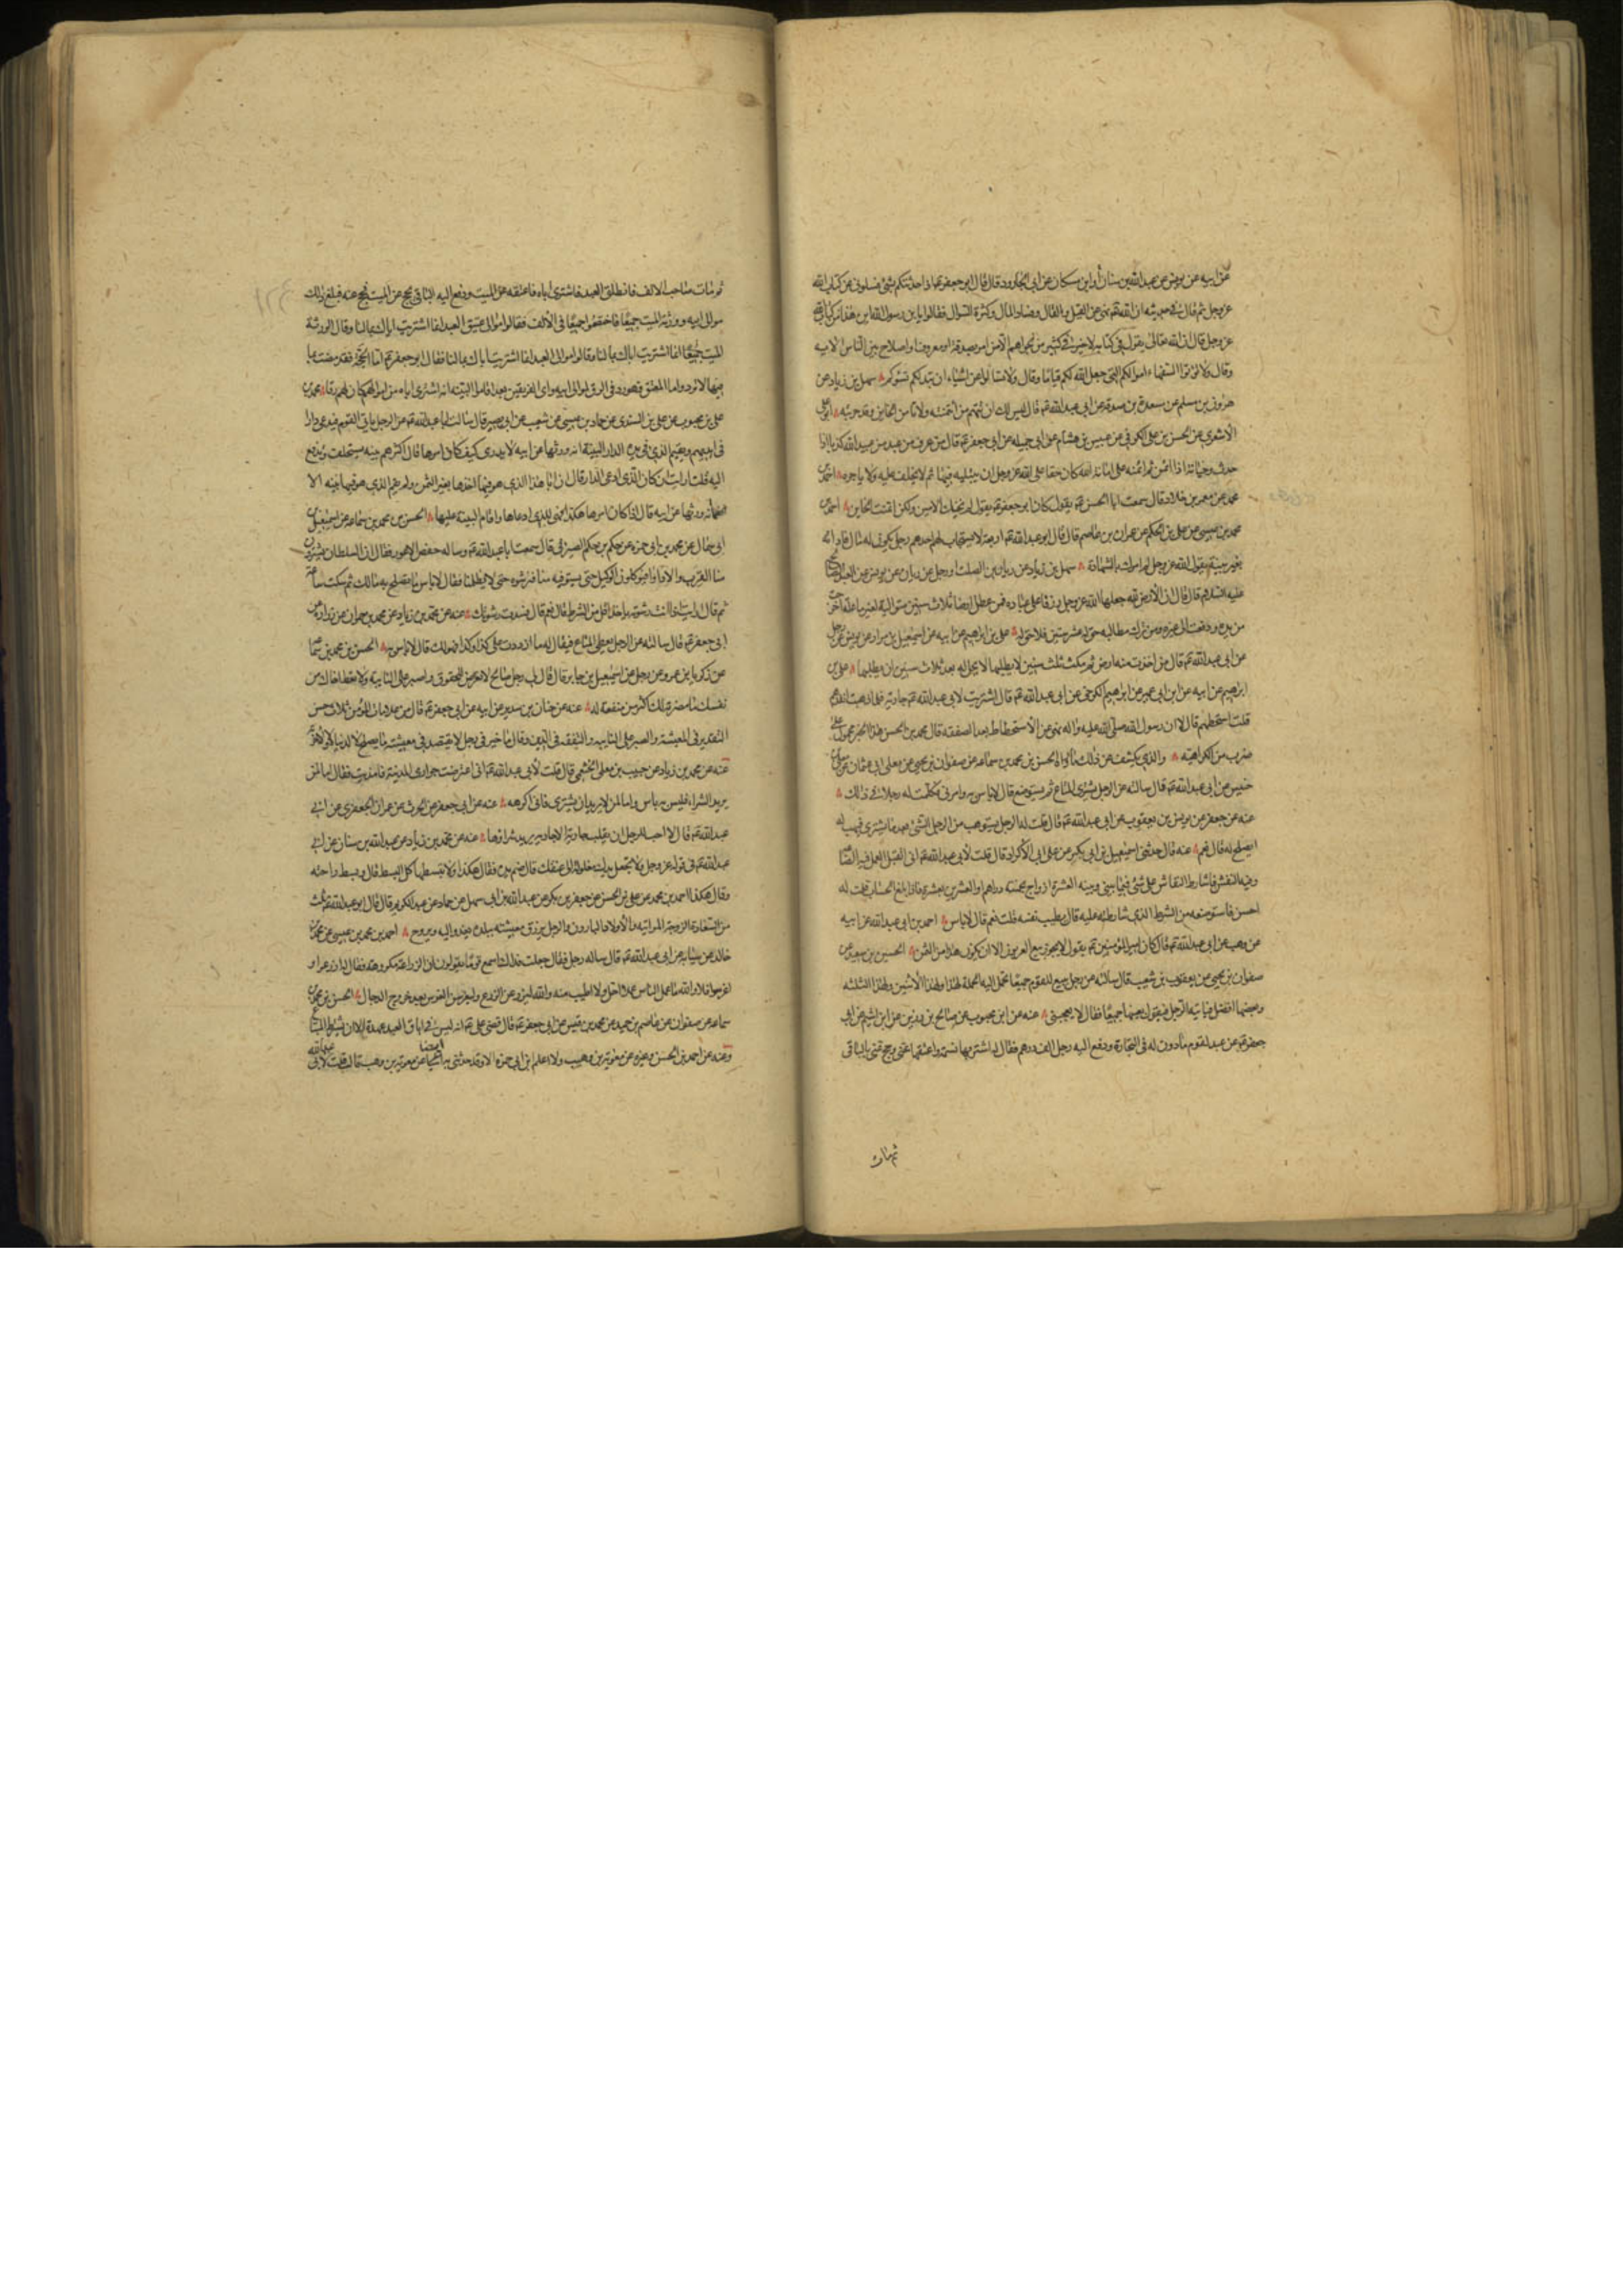 عن ابيه عن يونس عن عبدالله بن سنان أو ابن مسكان عن ابى الجارود قال قال ابو جعفر ع اذا حدثتكم بشئ فسلونى عن كتاب الله
عز وجل ثم قال فى حديثه ان الله نهى عن القيل والقال وفساد المال وكثرة السؤال فقالوا يا بن رسول الله اين هذا من كتاب الله
عز وجل قال ان الله تعالى يقول فى كتابه لا خير فى كثير من نجواهم الا من امر بصدقة او معروف او اصلاح بين الناس الاية
وقال ولا تؤتوا السفهاء اموالكم التى جعل الله لكم قياما وقال ولا تسالوا عن اشياء ان تبد لكم تسؤكم سهل بن زياد عن
هرون بن مسلم عن مسعدة بن صدقة عن ابى عبد الله ع قال ليس لك ان تتهم من ائتمنته ولا تامن الخاين وقد جربته ابو على
الاشعرى عن الحسن بن على الكوفى عن عبيس بن هشام عن ابى جميله عن ابى جعفر ع قال من عرف من عبد من عبيد الله كذبا اذا
حدث وخيانة اذا ائتمن ثم ائتمنه على امانة الله كان حقا على الله عز وجل ان يبتليه فيها ثم لا يخلف عليه ولا ياجره احمد بن
محمد عن معمر بن خلاد قال سمعت ابا الحسن ع يقول كان ابو جعفر ع يقول لم يخنك الامين ولكن ائتمنت الخاين احمد بن
محمد بن عيسى عن على بن الحكم عن عمران بن عاصم قال قال ابو عبد الله ع اربعة لا يستجاب لهم احدهم رجل يكون له مال فادانه
بغير بينة يقول الله عز وجل الم امرك بالشهادة سهل بن زياد عن ريان بن الصلت او رجل عن ريان عن يونس عن العبد الصالح
عليه السلام قال قال ان الأرض لله جعلها الله عز وجل وقفا على عباده فمن عطل ارضا ثلاث سنين متوالية لغير ما علة اخرجت
من يده ودفعت الى غيره ومن ترك مطالبة حق له عشر سنين فلا حق له على بن ابراهيم عن ابيه عن اسمعيل بن مرار عن يونس عن رجل
عن ابى عبد الله ع قال من اخذت منه ارض ثم مكث ثلث سنين لا يطلبها لا يحل له بعد ثلاث سنين ان يطلبها على بن
ابرهيم عن ابيه عن ابن ابى عمير عن ابرهيم الكرخى عن ابى عبد الله ع قال اشتريت لابى عبد الله ع جارية فلما ذهبت انقدهم
قلت استحطهم قال لا ان رسول الله صلى الله عليه واله نهى عن الاستحطاط بعد الصفقة قال محمد بن الحسن هذا الخبر محمول على
ضرب من الكراهية والذى يكشف عن ذلك ما رواه الحسن بن محمد بن سماعه عن صفوان بن يحيى عن معلى ابى عثمان عن معلى بن
خنيس عن ابى عبد الله ع قال سالته عن الرجل يشترى المتاع ثم يستوضع قال لا باس به وامرنى فكلمت له رجلا فى ذلك
عنه عن جعفر عن يونس بن يعقوب عن ابى عبد الله ع قال قلت له الرجل يستوهب من الرجل الشئ بعد ما يشترى فيهب له
ايصلح له قال نعم عنه قال حدثنى اسمعيل بن ابى بكر عن على ابى الأكراد قال قلت لأبى عبد الله ع انى اتقبل العمل فيه الصناعة
وفيه النقش فاشارط النقاش على شئ فيما بينى وبينه العشرة ازواج بخمسة دراهم او العشرين بعشرة فاذا بلغ الحساب قلت له
احسن فاستوضعه من الشرط الذى شارطته عليه قال بطيب نفسه قلت نعم قال لا باس احمد بن ابى عبد الله عن ابيه
عن وهب عن ابى عبد الله ع قال كان امير المؤمنين ع يقول لا يجوز بيع العربون الا ان يكون هذا من الثمن الحسين بن سعيد عن
صفوان بن يحيى عن يعقوب بن شعيب قال سالته عن رجل يبيع للقوم
وبعضها افضل فياتيه الرجل فيقول بعنيها جميعا فقال لا يعجبنى عنه عن ابن محبوب عن صالح بن رزين عن ابن اشيم عن ابى
جعفر ع عن عبد لقوم ماذون له فى التجارة ودفع اليه رجل الف درهم فقال له اشتر بها نسمة واعتقها عنى وحج عنى بالباقى
ثم مات
ثم مات صاحب الالف فانطلق العبد فاشترى اباه فاعتقه عن الميت ودفع اليه الباقى يحج عن الميت فحج عنه فبلغ ذلك
موالى ابيه وورثة الميت جميعا فاختصموا جميعا فى الألف فقالوا موالى معتق العبد انما اشتريت اباك بمالنا وقال الورثة
الميت جميعا انما اشتريت اباك بمالنا وقالوا موالى العبد انما اشتريت اباك بمالنا فقال ابو جعفر ع اما الحجة فقد مضت بما
فيها لا ترد واما المعتق فهو رد فى الرق لموالى ابيه واى الفريقين بعد اقاموا البينة انه اشترى اباه من اموالهم كان لهم رقا محمد بن
على بن محبوب عن على بن السندى عن حماد بن عيسى عن شعيب عن ابى بصير قال سالت ابا عبد الله ع عن الرجل ياتى القوم فيدعى دارا
فى ايديهم ويقيم الذى فى يده الدار البينة انه ورثها عن ابيه لا يدرى كيف كان امرها قال اكثرهم بينه يستحلف ويدفع
اليه قلت ارايت ان كان الذى ادعى الدار قال ان ابا هذا الذى هو فيها اخذها بغير الثمن ولم يقم الذى هو فيها بينه الا
انه ورثها عن ابيه قال اذا كان امرها هكذا فهى للذى ادعاها واقام البينة عليها الحسن بن محمد بن سماعه عن اسمعيل بن
ابى سمال عن محمد بن ابى حمزه عن حكم بن حكيم الصيرفى قال سمعت ابا عبد الله ع وساله حفص الاعور فقال ان السلطان يشترون
منا القرب والاداوى فيوكلون الوكيل حتى يستوفيه منا فنرشوه حتى لا يظلمنا فقال لا باس ما تصلح به مالك ثم سكت ساعة
ثم قال ارايت اذا انت رشوته ياخذ اقل من الشرط قال نعم قال فسدت رشوتك عنه عن محمد بن زياد عن محمد بن حمران عن زراره عن
ابى جعفر ع قال سالته عن الرجل يعطى المتاع فيقال له ما ازددت على كذا وكذا فهو لك قال لا باس به الحسن بن محمد بن سماعه
عن زكريا بن عمرو عن رجل عن اسمعيل بن جابر قال قال لى رجل صالح لا تعرض للحقوق واصبر على النائبة ولا تعط اخاك من
نفسك ما مضرته لك اكثر من منفعته له عنه عن حنان بن سدير عن ابيه عن ابى جعفر ع قال من علامات المؤمن ثلاث حسن
التقدير فى المعيشة والصبر على النايبه والتفقه فى الدين وقال ما خير فى رجل لا يقتصد فى معيشته ما يصلح لا لدنياه ولا لاخرته
عنه عن محمد بن زياد عن حبيب بن معلى الخثعمى قال قلت لأبى عبد الله ع انى اعترضت جوارى المدينة فامذيت فقال اما لمن
يريد الشراء فليس به باس واما لمن لا يريد ان يشترى فانى اكرهه عنه عن ابى جعفر عن الحرث عن عمران الجعفرى عن ابى
عبد الله ع قال لا احب للرجل ان يقلب جارية الا جارية يريد شراؤها عنه عن محمد بن زياد عن عبد الله بن سنان عن ابى
عبد الله ع فى قوله عز وجل ولا تجعل يدك مغلولة الى عنقك قال ضم يده فقال هكذا ولا تبسطها كل البسط قال وبسط راحته
وقال هكذا احمد بن محمد عن على بن الحسن عن جعفر بن بكر عن عبد الله بن ابى سهل عن حماد عن عبد الكريم قال قال ابو عبد الله ع ثلث
من السعادة الزوجة المواتيه والأولاد البارون والرجل يرزق معيشته ببلده يغدو اليه ويروح احمد بن محمد بن عيسى عن محمد بن
خالد عن سيابه عن ابى عبد الله ع قال ساله رجل فقال جعلت فداك اسمع قوما يقولون ان الزراعة مكروهة فقال له ازرعوا و
اغرسوا فلا والله ما عمل الناس عملا احل ولا اطيب منه والله ليزرعن الزرع وليغرسن الغرس بعد خروج الدجال الحسن بن محمد بن
سماعه عن صفوان عن عاصم بن حميد عن محمد بن قيس عن ابى جعفر ع قال قضى على ع انه ليس فى اباق العبد عهدة الا ان يشترط المبتاع
وعنه عن احمد بن الحسن وغيره عن معوية بن وهب ولا اعلم ابن ابى حمزه الا وقد حدثنى به ايضا عن معوية بن وهب قال قلت لأبى عبد الله